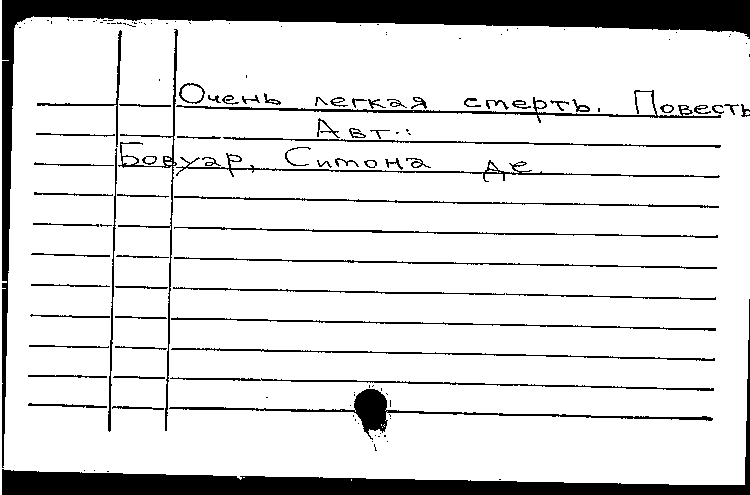 Очень легкая смерть. Повесть
Авт.:
Бовуар, Симона де.